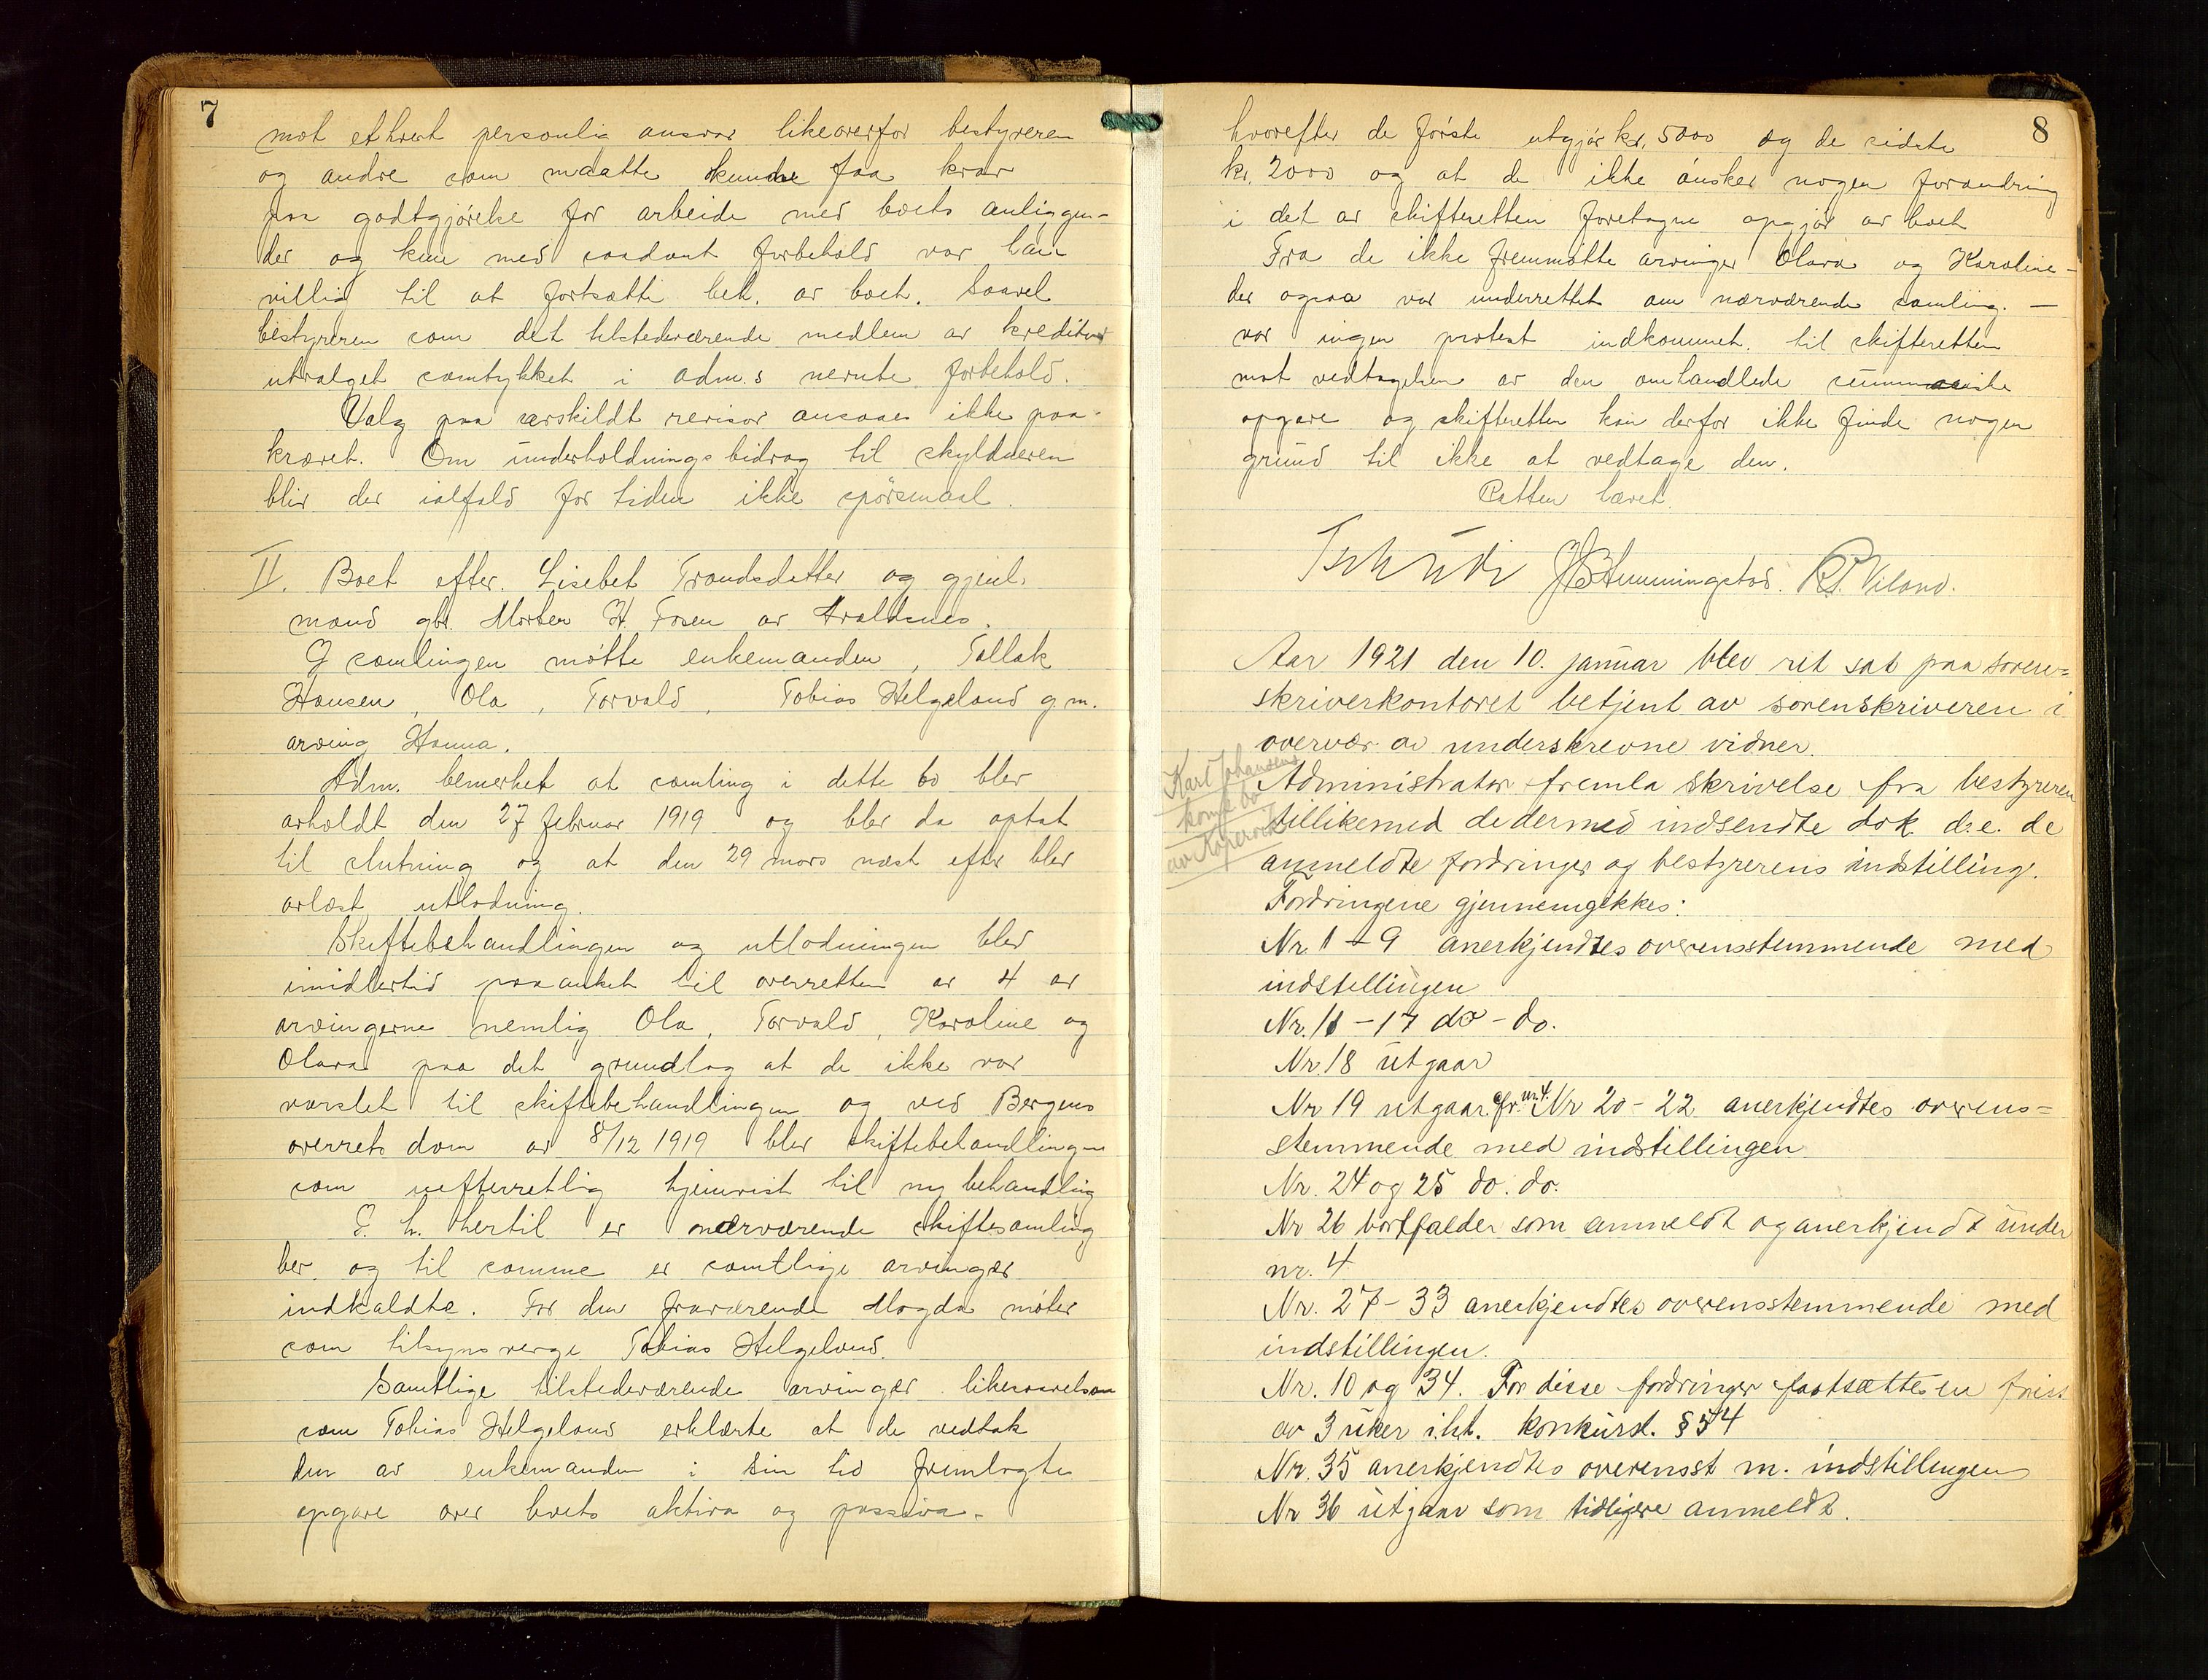 7
mot ethvert personlig ansvar likeoverfor bestyreren
og andre som maatte kunde faa krav
paa godtgjørelse for arbeide med boets anliggen-
der og kun med saadant forbehold var han
villig til at fortsætte beh. av boet. Saavel
bestyreren som det tilstedeværende medlem av kreditor
utvalget samtykket i adm.s nevnte forbehold.
Valg paa særskildt revisor ansaaes ikke paa-
krævet. Om underholdningsbidrag til skyldneren
blir der ialfald for tiden ikke spørsmaal.
II. Boet efter Lisebet Trondsdatter og gjenl.
mand gbr. Morten H. Fosen av Avaldsnes.
I samlingen møtte enkemanden, Tollak
Hansen, Ola, Torvald, Tobias Helgeland g.m.
arving Hanna.
Adm. bemerket at samling i dette bo blev
avholdt den 27 februar 1919 og blev da optat
til slutning og at den 29 mars næst efter blev
avlæst utlodning.
Skiftebehandlingen og utlodningen blev
imidlertid paaanket til overretten av 4 av
arvingerne nemlig Ola, Torvald, Karoline og
Olava paa det grundlag at de ikke var
varslet til skiftebehandlingen og ved Bergens
overrets dom av 8/12 1919 blev skiftebehandlingen
som uefterretlig hjemvist til ny behandling
I. h. hertil er nærværende skiftesamling
ber. og til samme er samtlige arvinger
indkaldte. For den fraværende Magda møter
som tilsynsverge Tobias Helgeland.
Samtlige tilstedeværende arvinger likesaavelsom
som Tobias Helgeland erklærte at de vedtok
den av enkemanden i sin tid fremlagte
opgave over boets aktiva og passiva-
8
hvorefter de første utgjør kr. 5000 og de sidste
kr. 2000 og at de ikke ønsker nogen forandring
i det av skifteretten foretagne opgjør av boet
Fra de ikke fremmøtte arvinger Olava og Karoline-
der ogsaa var underrettet om nærværende samling. —
var ingen protest indkommet til skifteretten
mot vedtagelsen av den omhandlede summariske
opgave og skifteretten kan derfor ikke finde nogen
grund til ikke at vedtage den.
Retten hævet.
Tschudi J B Hemmingstad. R. P. Viland.
Aar 1921 den 10. januar blev ret sat paa soren=
skriverkontoret betjent av sorenskriveren i
overvær av underskrevne vidner.
Karl Johansens
konk bo
av Kopervik
Administrator fremla skrivelse fra bestyreren
tillikemed de dermed indsendte dok. d.e. de
anmeldte fordringer og bestyrerens indstilling.
Fordringene gjennemgikkes:
Nr. 1 - 9 anerkjendtes overensstemmende med
indstillingen
Nr. 11 - 17 do - do.
Nr. 18 utgaar
Nr 19 utgaar cfr. nr. 4. Nr 20 - 22 anerkjendtes overens=
stemmende med indstillingen
Nr. 24 og 25 do. do.
Nr 26 bortfalder som anmeldt og anerkjendt under
nr. 4
Nr. 27 - 33 anerkjendtes overensstemmende med
indstillingen.
Nr. 10 og 34. For disse fordringer fastsættes en frist
av 3 uker i.ht. konkursl. § 54
Nr. 35 anerkjendtes overensst m. indstillingen
Nr 36 utgaar som tidligere anmeldt.